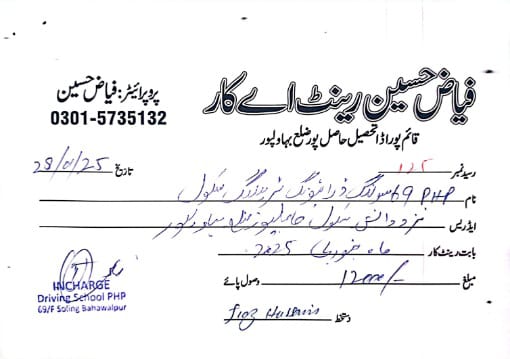 فیاض حسین رینٹ اے کار
پروپرائیٹر: فیاض حسین
0301-5735132
قائم پور اڈا تحصیل حاصل پور ضلع بہاولپور
رسید نمبر 125
تاریخ 28/01/25
نام 69 PHP سولنگ ڈرائیونگ ٹریننگ سکول
ایڈریس نزد دانش سکول حاصلپور ضلع بہاولپور
بابت رینٹ کار ماہ جنوری 2025
مبلغ 12000/- وصول پائے
دستخط Hussain
INCHARGE
Driving School PHP
69/F Soling Bahawalpur